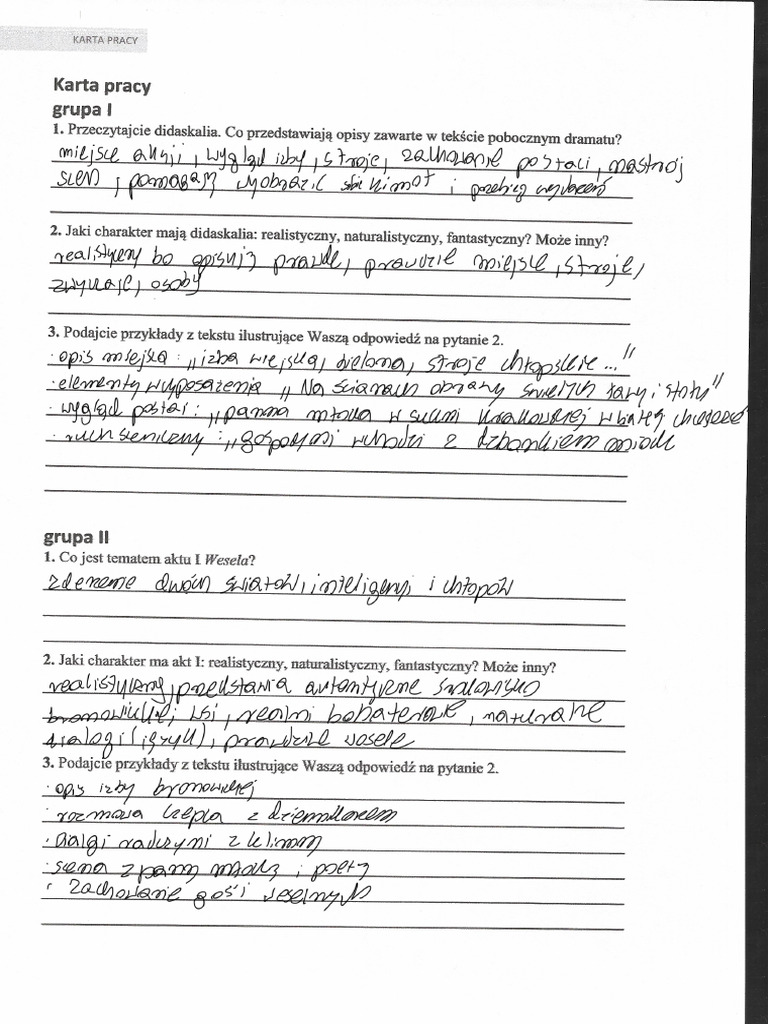 KARTA PRACY
Karta pracy
grupa I
1. Przeczytajcie didaskalia. Co przedstawiają opisy zawarte w tekście pobocznym dramatu?
miejsce akcji, wygląd izby, stroje, zachowanie postaci, nastrój
scen, pomagają wyobrazić sobie klimat i przebieg wydarzeń
2. Jaki charakter mają didaskalia: realistyczny, naturalistyczny, fantastyczny? Może inny?
realistyczny bo opisują prawdę, prawdziwe miejsce, stroje,
zwyczaje, osoby
3. Podajcie przykłady z tekstu ilustrujące Waszą odpowiedź na pytanie 2.
· opis miejsca: „izba wiejska, bielona, stroje chłopskie..."
· elementy wyposażenia „Na ścianach obrazy świętych ławy i stoły"
· wygląd postaci: „panna młoda w sukni krakowskiej w białej
· ruch sceniczny: „gospodyni wchodzi z dzbankiem miodu
grupa II
1. Co jest tematem aktu I Wesela?
zderzenie dwóch światów, inteligencji i chłopów
2. Jaki charakter ma akt I: realistyczny, naturalistyczny, fantastyczny? Może inny?
realistyczny, przedstawia autentyczne środowisko
bronowickiej wsi, realni bohaterowie, naturalne
dialogi (język), prawdziwe wesele
3. Podajcie przykłady z tekstu ilustrujące Waszą odpowiedź na pytanie 2.
· opis izby bronowickiej
· rozmowa Czepca z dziennikarzem
· dialogi radczyni z kliminą
· scena z panną młodą i poetą
· zachowanie gości weselnych